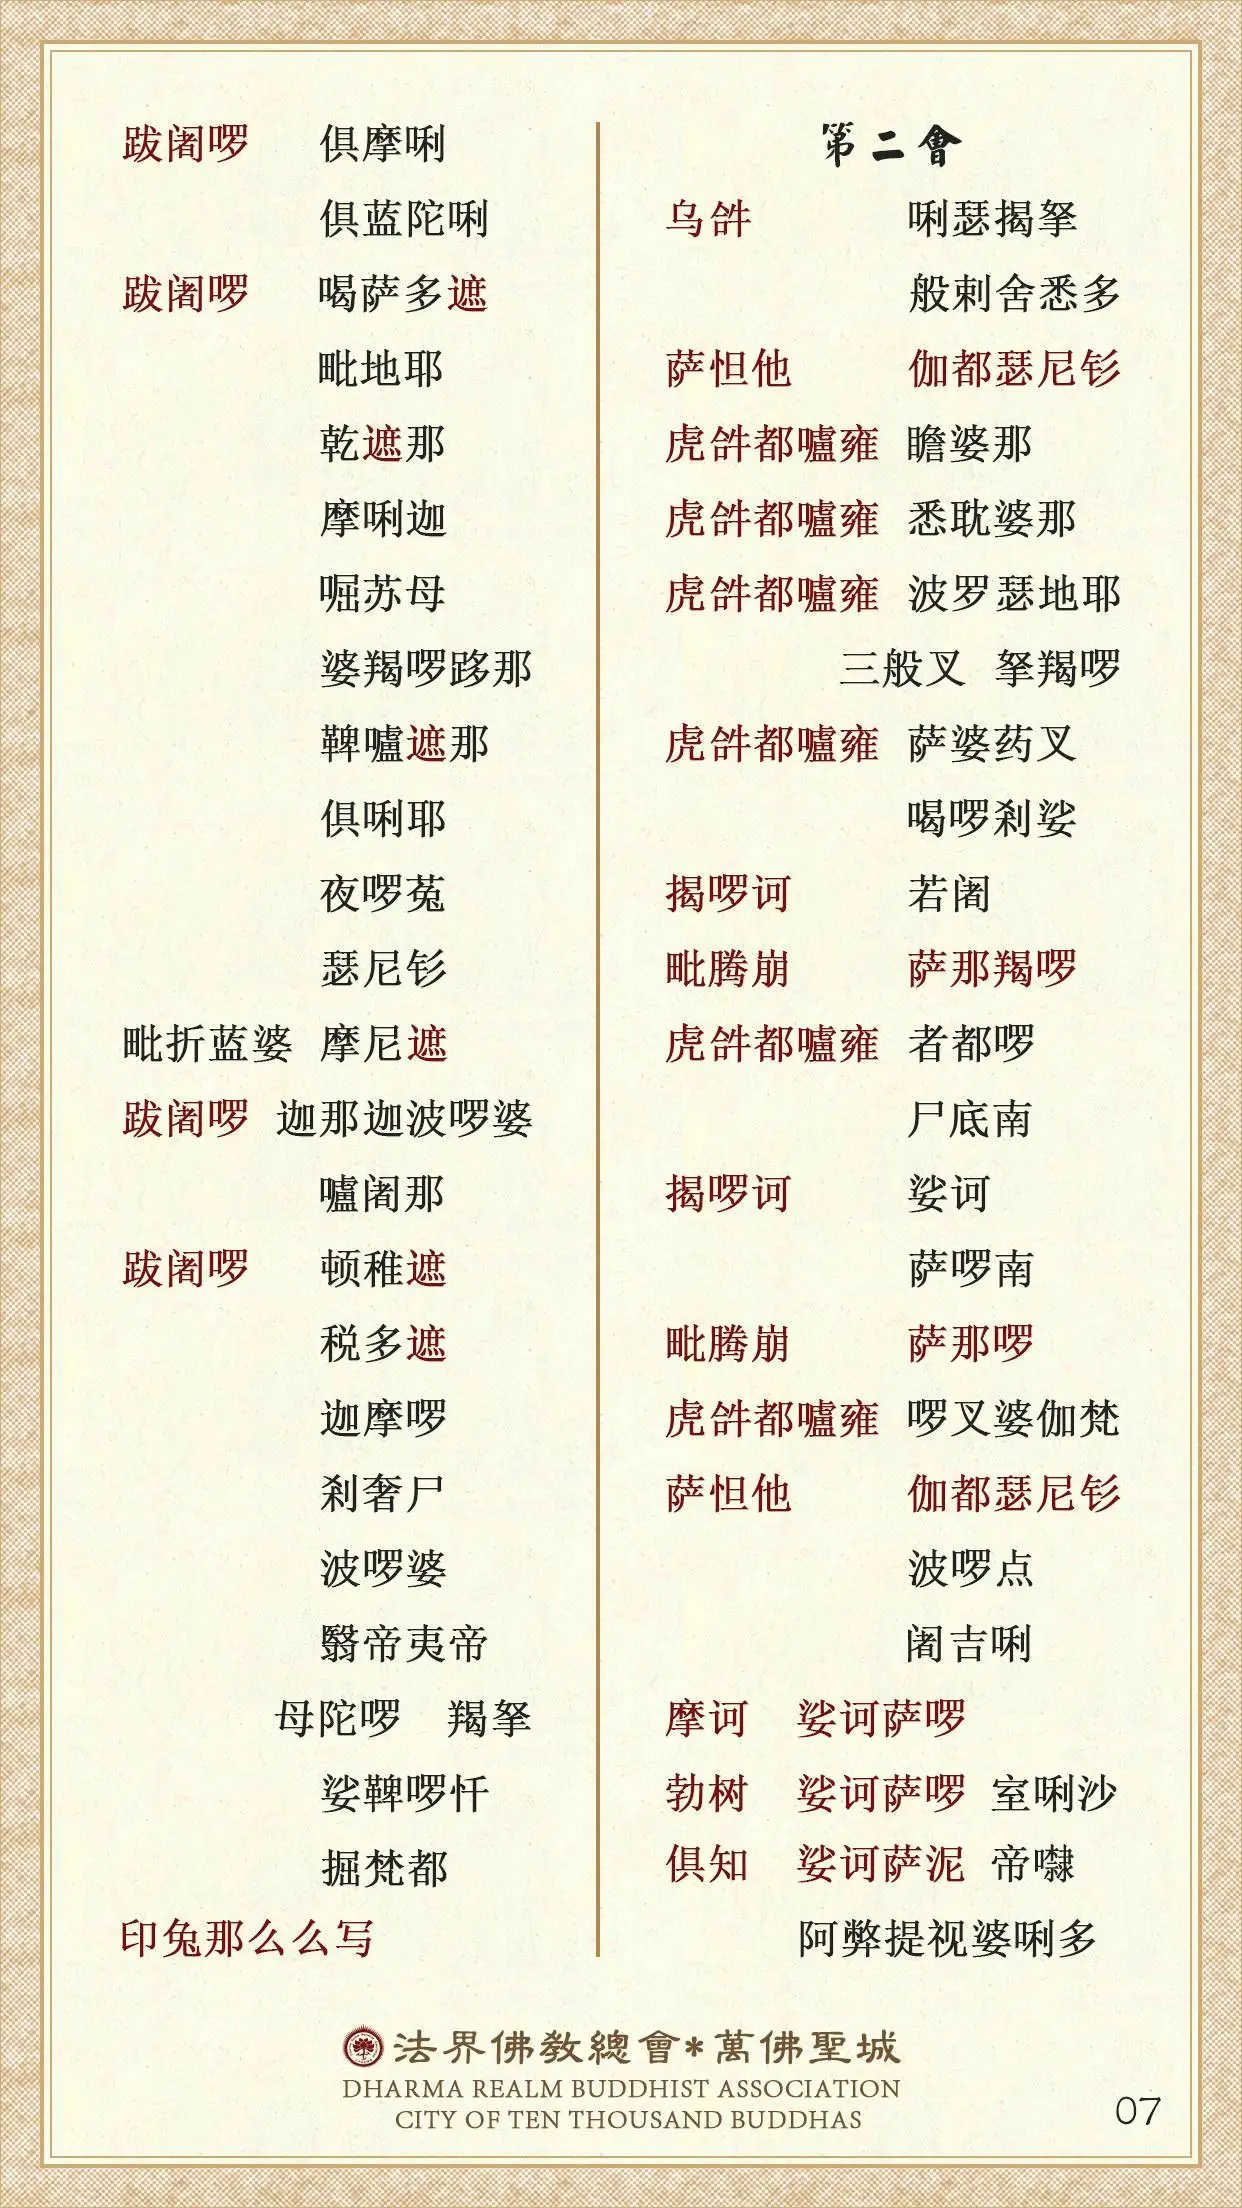 跋阇啰 俱摩唎
俱蓝陀唎
跋阇啰 喝萨多遮
毗地耶
乾遮那
摩唎迦
啒苏母
婆羯啰跢那
鞞嚧遮那
俱唎耶
夜啰菟
瑟尼钐
毗折蓝婆 摩尼遮
跋阇啰 迦那迦波啰婆
嚧阇那
跋阇啰 顿稚遮
税多遮
迦摩啰
刹奢尸
波啰婆
翳帝夷帝
母陀啰 羯拏
娑鞞啰忏
掘梵都
印兔那么么写
第二會
乌𤙖 唎瑟揭拏
般剌舍悉多
萨怛他 伽都瑟尼钐
虎𤙖都嚧雍 瞻婆那
虎𤙖都嚧雍 悉耽婆那
虎𤙖都嚧雍 波罗瑟地耶
三般叉 拏羯啰
虎𤙖都嚧雍 萨婆药叉
喝啰刹娑
揭啰诃 若阇
毗腾崩 萨那羯啰
虎𤙖都嚧雍 者都啰
尸底南
揭啰诃 娑诃
萨啰南
毗腾崩 萨那啰
虎𤙖都嚧雍 啰叉婆伽梵
萨怛他 伽都瑟尼钐
波啰点
阇吉唎
摩诃 娑诃萨啰
勃树 娑诃萨啰 室唎沙
俱知 娑诃萨泥 帝㘑
阿弊提视婆唎多
法界佛教總會*萬佛聖城
DHARMA REALM BUDDHIST ASSOCIATION
CITY OF TEN THOUSAND BUDDHAS
07